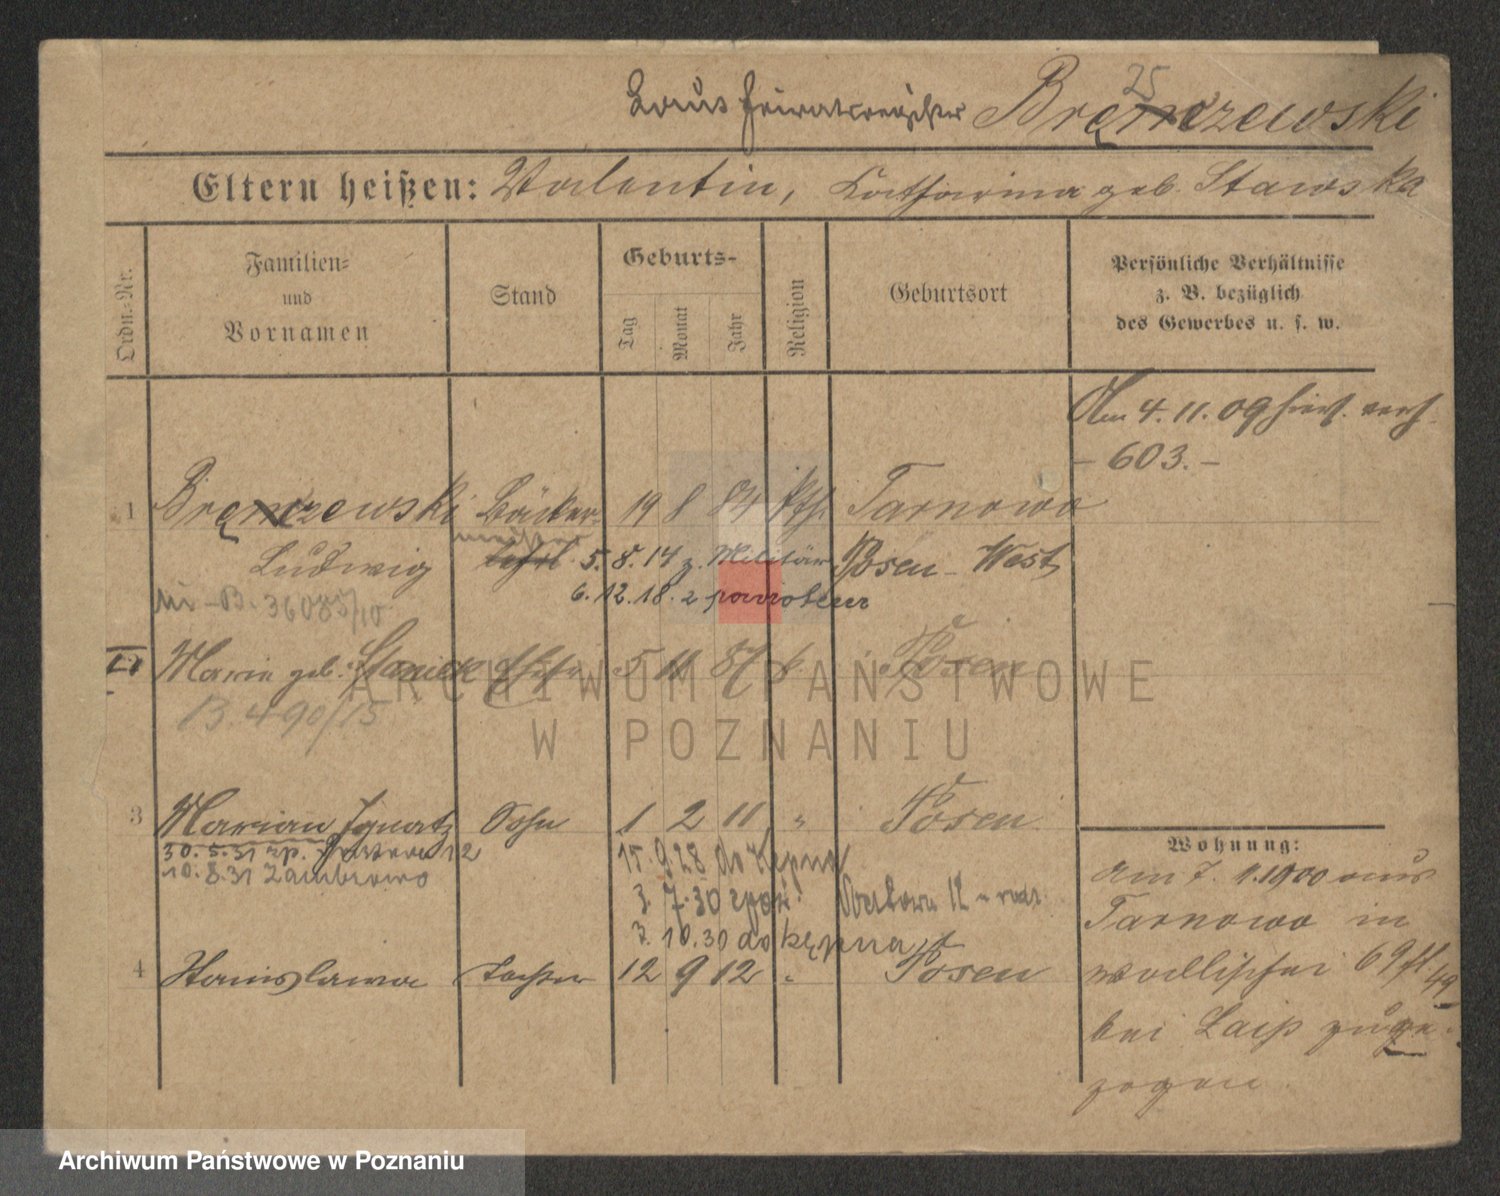 25
Laut Heiratsregister Bręczewski
Eltern heißen: Valentin, Katharina geb. Stawska
Ordn.-Nr.
Familien-
und
Vornamen
Stand
Geburts-
Tag
Monat
Jahr
Religion
Geburtsort
Persönliche Verhältnisse
z. B. bezüglich
des Gewerbes u. s. w.
Am 4. 11. 09 heir. verh.
- 603. -
1 Bręczewski Bäcker- 19 8 84 kth. Tarnowo
meister
Ludwig 5. 8. 14 z. Militär Posen-West
6. 12. 18. z powrotem
B. 36085/10
Marie geb. 5 11 87 k. Posen
B. 490/15
3 Marian Ignatz Sohn 1 2 11 " Posen
30. 5. 31 zp. 12
10. 8. 31 Zambrowo
15. 9. 28 do Kępna
3. 7. 30 zpow.
3. 10. 30 do Kępna
4 Stanislawa Tochter 12 9 12 " Posen
Wohnung:
Am 7. 1. 1900 aus
Tarnowo in
Wallischei 69
bei Laiß zuge-
zogen
ARCHIWUM PAŃSTWOWE
W POZNANIU
Archiwum Państwowe w Poznaniu